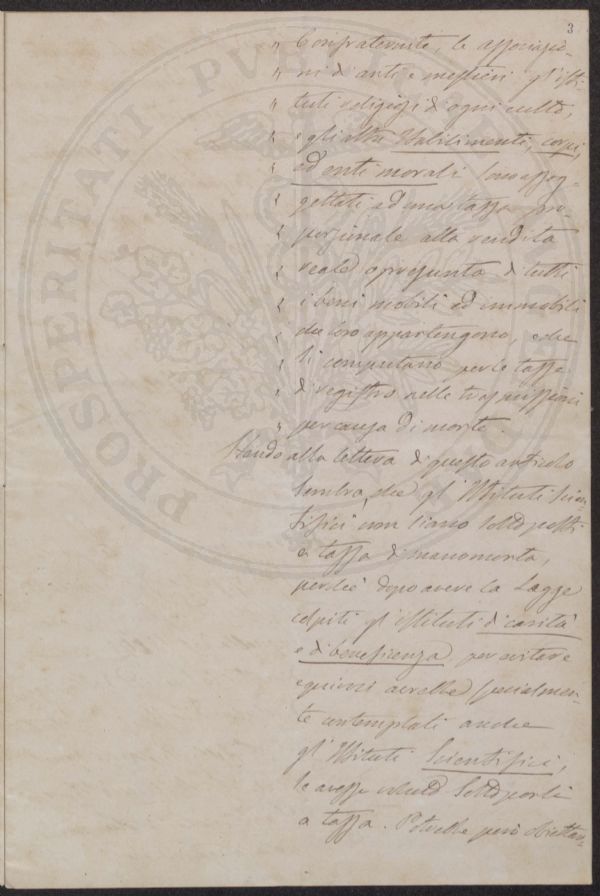 3
" Confraternite, le associazio-
" ni d'arti e mestieri gl'isti-
" tuti religiosi d'ogni culto,
" e gli altri stabilimenti, corpi,
" ed enti morali sono assog-
" gettati ad una tassa pro-
" porzionale alla rendita
" reale o presunta di tutti
" i beni mobili ed immobili
" che loro appartengono, e che
" si computano per le tasse
" di registro nelle trasmissioni
" per causa di morte.
Stando alla lettera di questo articolo
sembra, che gl'Istituti Scien-
tifici non siano sottoposti
a tassa di manomorta,
perché dopo avere la Legge
colpiti gl'istituti di carità
e di beneficenza, per evitare
equivoci avrebbe specialmen-
te contemplati anche
gl'Istituti Scientifici,
se avesse voluto sottoporli
a tassa. Potrebbe però obiettar-
PROSPERITATI PUBLICAE